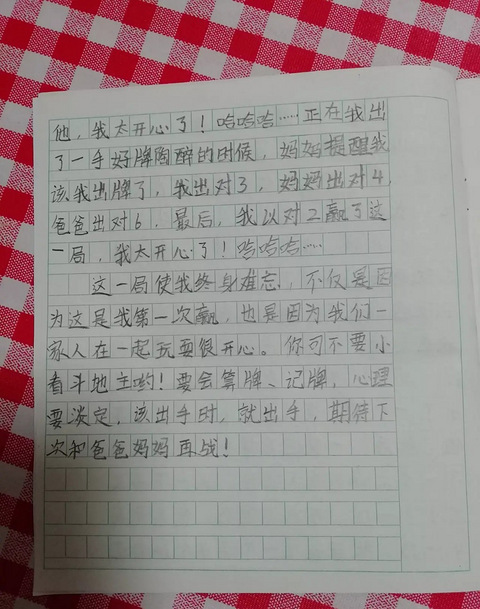 他，我太开心了！哈哈哈……正在我出
了一手好牌陶醉的时候，妈妈提醒我
该我出牌了，我出对3，妈妈出对4，
爸爸出对6，最后，我以对2赢了这
一局，我太开心了！哈哈哈……
这一局使我终身难忘，不仅是因
为这是我第一次赢，也是因为我们一
家人在一起玩耍很开心。你可不要小
看斗地主哟！要会算牌、记牌，心理
要淡定，该出手时，就出手，期待下
次和爸爸妈妈再战！